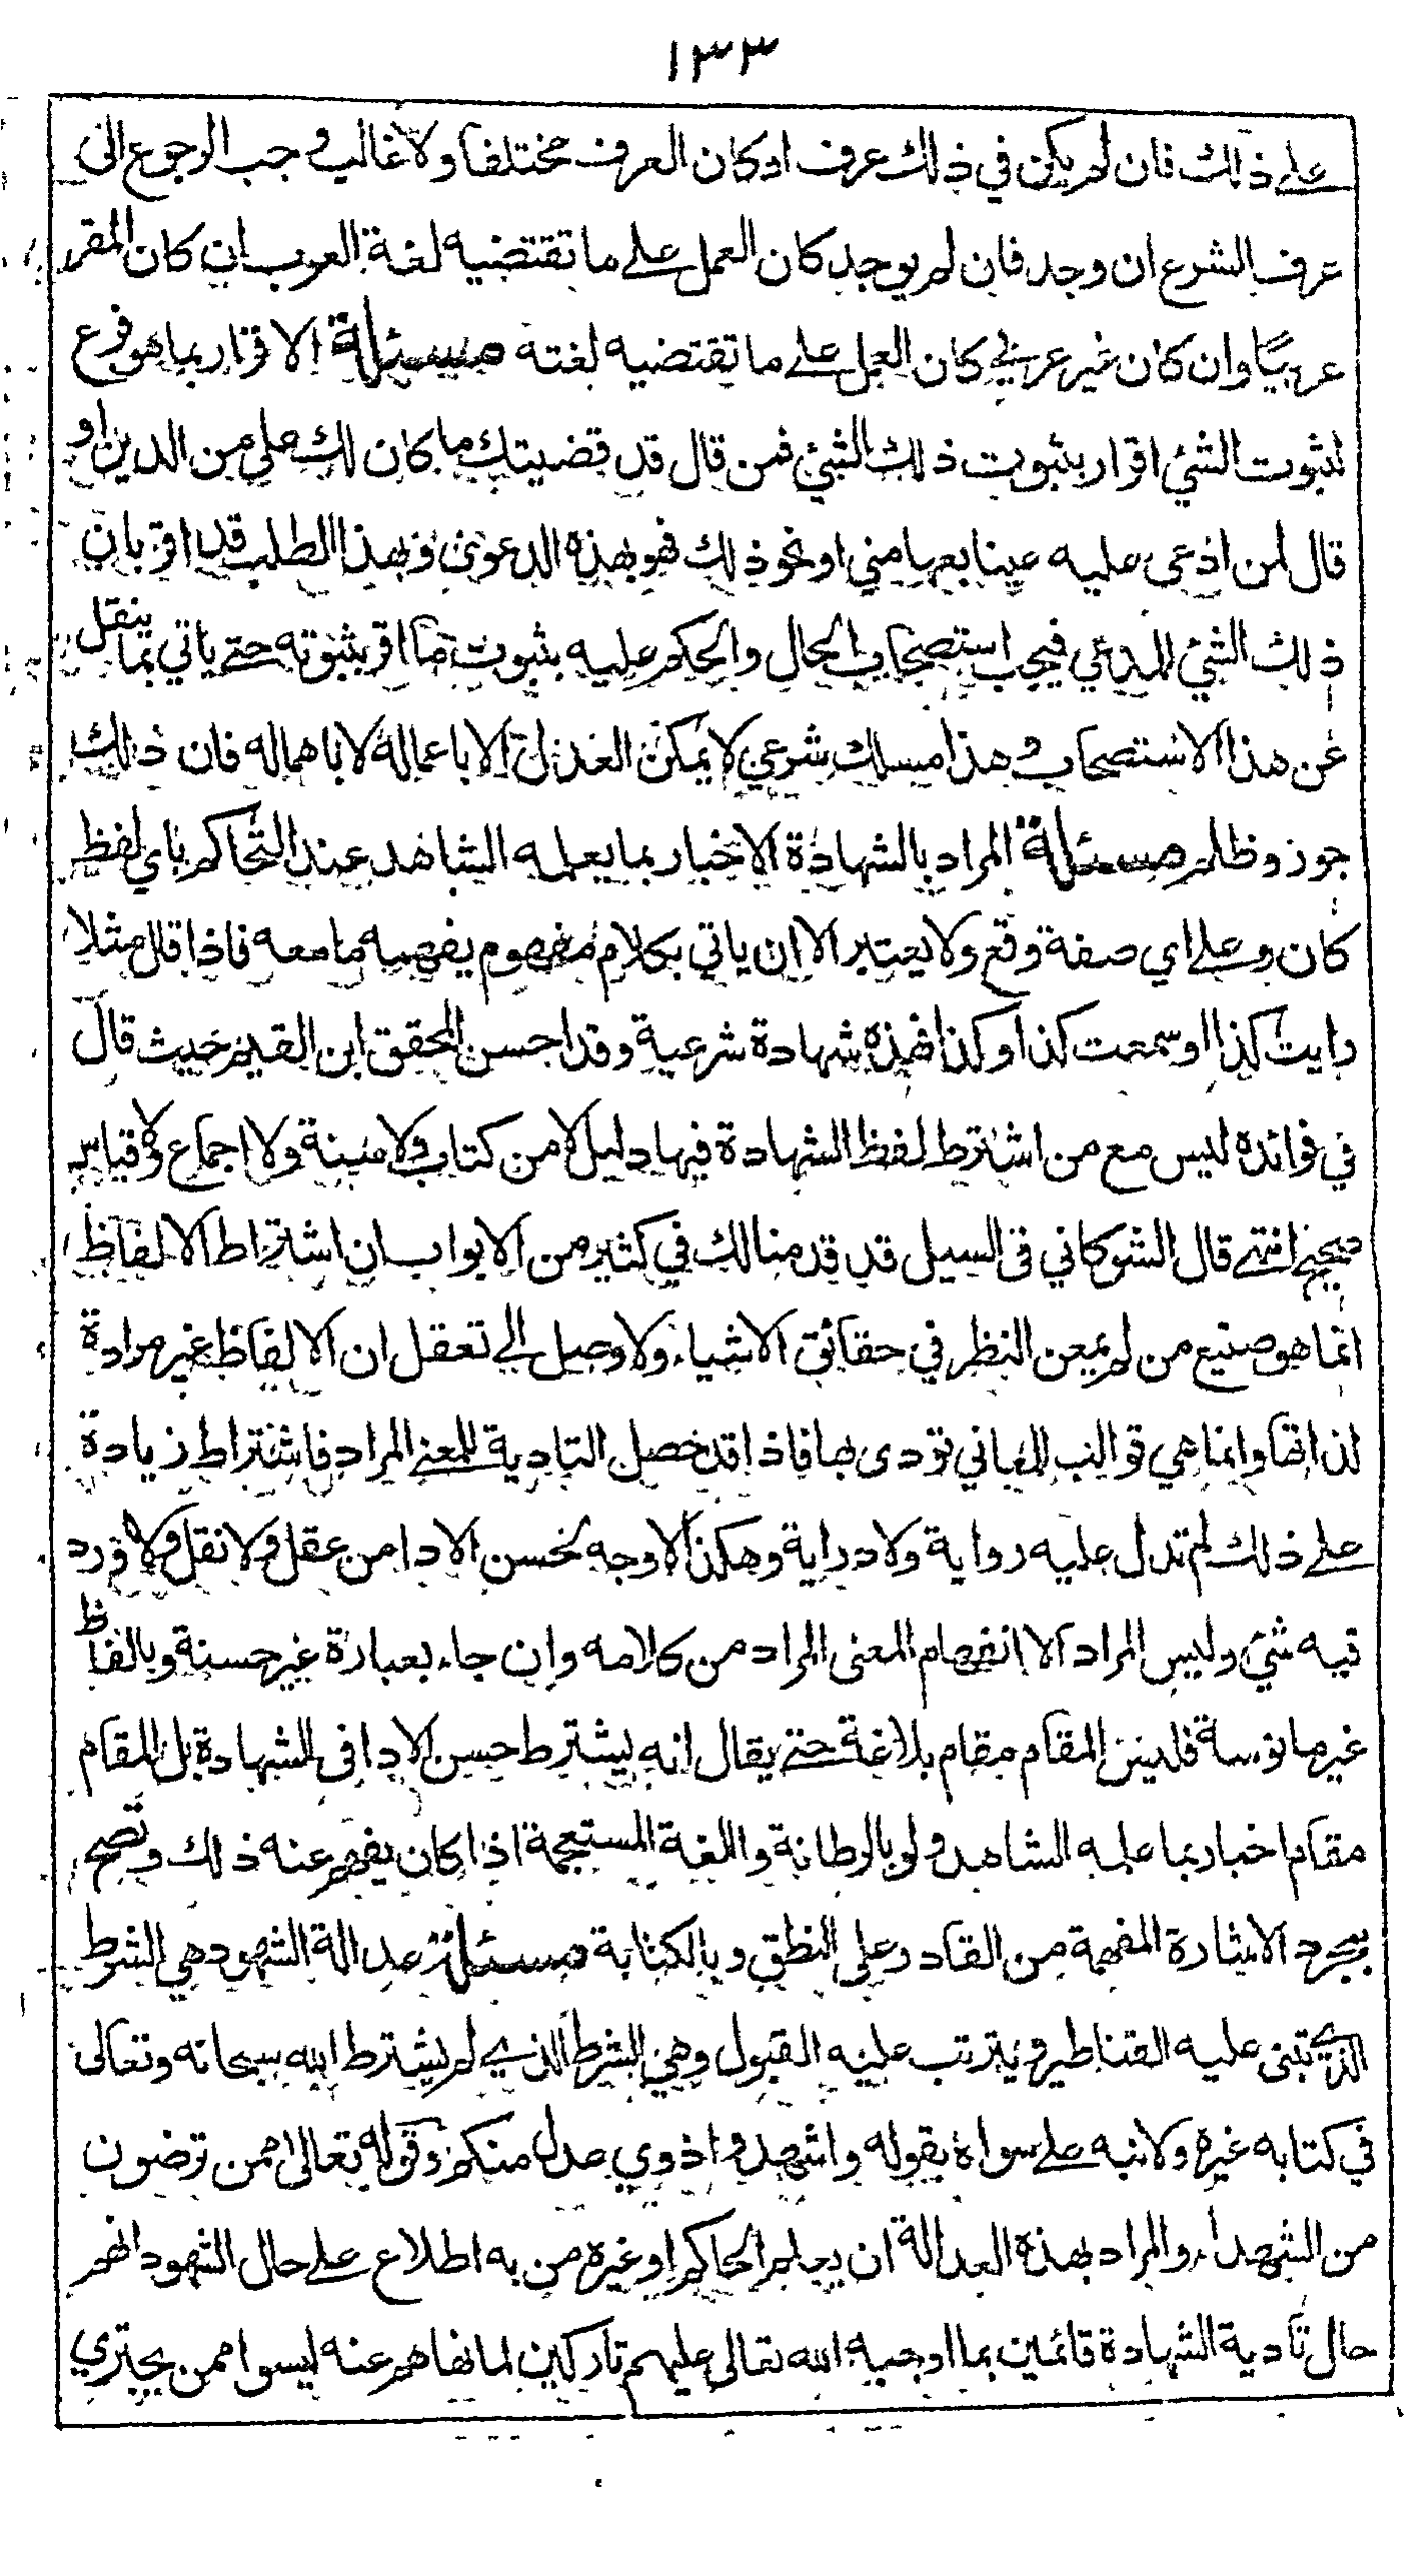 ١٣٣
على ذلك فان لم يكن في ذلك عرف او كان العرف مختلفا ولا غالب وجب الرجوع الى
عرف الشرع ان وجد فان لم يوجد كان العمل على ما تقتضيه لغة العرب ان كان المقر
عربيا وان كان غير عربي كان العمل على ما تقتضيه لغته مسئلة الاقرار بما هو فرع
لثبوت الشئ اقرار بثبوت ذلك الشئ فمن قال قد قضيتك ما كان لك علي من الدين او
قال لمن ادعى عليه عينا بعها مني او نحو ذلك فهو بهذه الدعوى وبهذا الطلب قد اقر بان
ذلك الشئ للمدعي فيجب استصحاب الحال والحكم عليه بثبوت ما اقر بثبوته حتى ياتي بما ينقل
عن هذا الاستصحاب وهذا مسلك شرعي لا يمكن العدل الا باعماله لا باهماله فان ذلك
جور وظلم مسئلة المراد بالشهادة الاخبار بما يعلمه الشاهد عند التحاكم باي لفظ
كان وعلى اي صفة وقع ولا يعتبر الا ان ياتي بكلام مفهوم يفهمه سامعه فاذا قال مثلا
رايت كذا او سمعت كذا وكذا فهذه شهادة شرعية وقد احسن المحقق ابن القيم حيث قال
في فوائده ليس مع من اشترط لفظ الشهادة فيها دليل لا من كتاب ولا سنة ولا اجماع ولا قياس
صحيح انتهى قال الشوكاني في السيل قد قدمنا لك في كثير من الابواب ان اشتراط الالفاظ
انما هو صنيع من لم يمعن النظر في حقائق الاشياء ولا وصل الى تعقل ان الالفاظ غير مرادة
لذاتها وانما هي قوالب للمعاني تؤدى بها فاذا قد حصل التادية للمعنى المراد فاشتراط زيادة
على ذلك لم تدل عليه رواية ولا دراية وهكذا لا وجه لحسن الادا من عقل ولا نقل ولا ورد
فيه شئ وليس المراد الا انفهام المعنى المراد من كلامه وان جاء بعبارة غير حسنة وبالفاظ
غير مانوسة فليس المقام مقام بلاغة حتى يقال انه يشترط حسن الادا في الشهادة بل المقام
مقام اخبار بما علمه الشاهد ولو بالرطانة واللغة المستعجمة اذا كان يفهم عنه ذلك وتصح
بمجرد الاشارة المفهمة من القادر على النطق وبالكتابة مسئلة عدالة الشهود هي الشرط
الذي تبنى عليه القناطير ويترتب عليه القبول وهي الشرط الذي لم يشترط الله سبحانه وتعالى
في كتابه غيره ولا نبه على سواه بقوله واشهدوا ذوي عدل منكم وقوله تعالى ممن ترضون
من الشهداء والمراد بهذه العدالة ان يعلم الحاكم او غيره من به اطلاع على حال الشهود انهم
حال تادية الشهادة قائمين بما اوجبه الله تعالى عليهم تاركين لما نهاهم عنه ليسوا ممن يجتري